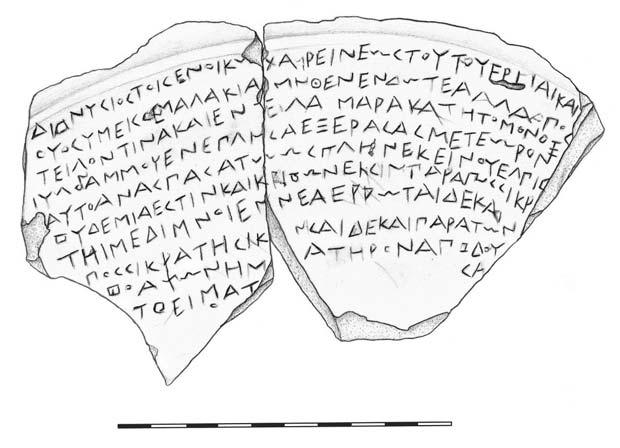 ΔΙΟΝΥΣΙΟΣΤΟΙΣΕΝΟΙΚΩ ΧΑΙΡΕΙΝΕΩΣΤΟΥΤΟΥ
ΟΥΟΣΥΜΕΙΣΕΜΑΛΑΚΙΑ ΜΗΘΕΝΕΝΔΩΤΕΑΛΛΑΠΟΣ
ΤΕΙΛΟΝΤΙΝΑΚΑΙΕΝ ΕΙΛΑΜΑΡΑΚΑΤΗΤΟΜΟΝΟΞ
ΙΥΛΔΑΜΜΟΥΕΝΕΠΛΗ ΣΑΕΞΕΡΑΣΑΣΜΕΤΕΩΡΟΝ
ΑΥΤΟΑΝΑΣΠΑΣΑΤΩ ΩΣΠΛΗΝΕΚΕΙΝΟΥΕΛΠΙΣ
ΟΥΔΕΜΙΑΕΣΤΙΝΚΑΙΚ
ΤΗΙΜΕΔΙΜΝΟΙΕΝ ΝΕΑΕΡΩΤΑΙΔΕΚΑ
ΠΟΣΣΙΚΡΑΤΗΣΙΚ ΗΣΑΙΔΕΚΑΙΠΑΡΑΤΩΝ
ΟΨΩΝΗΜ ΑΤΗΡΟΝΑΠΟΔΟΥ
ΤΟΕΙΜΑΤ ΣΗ